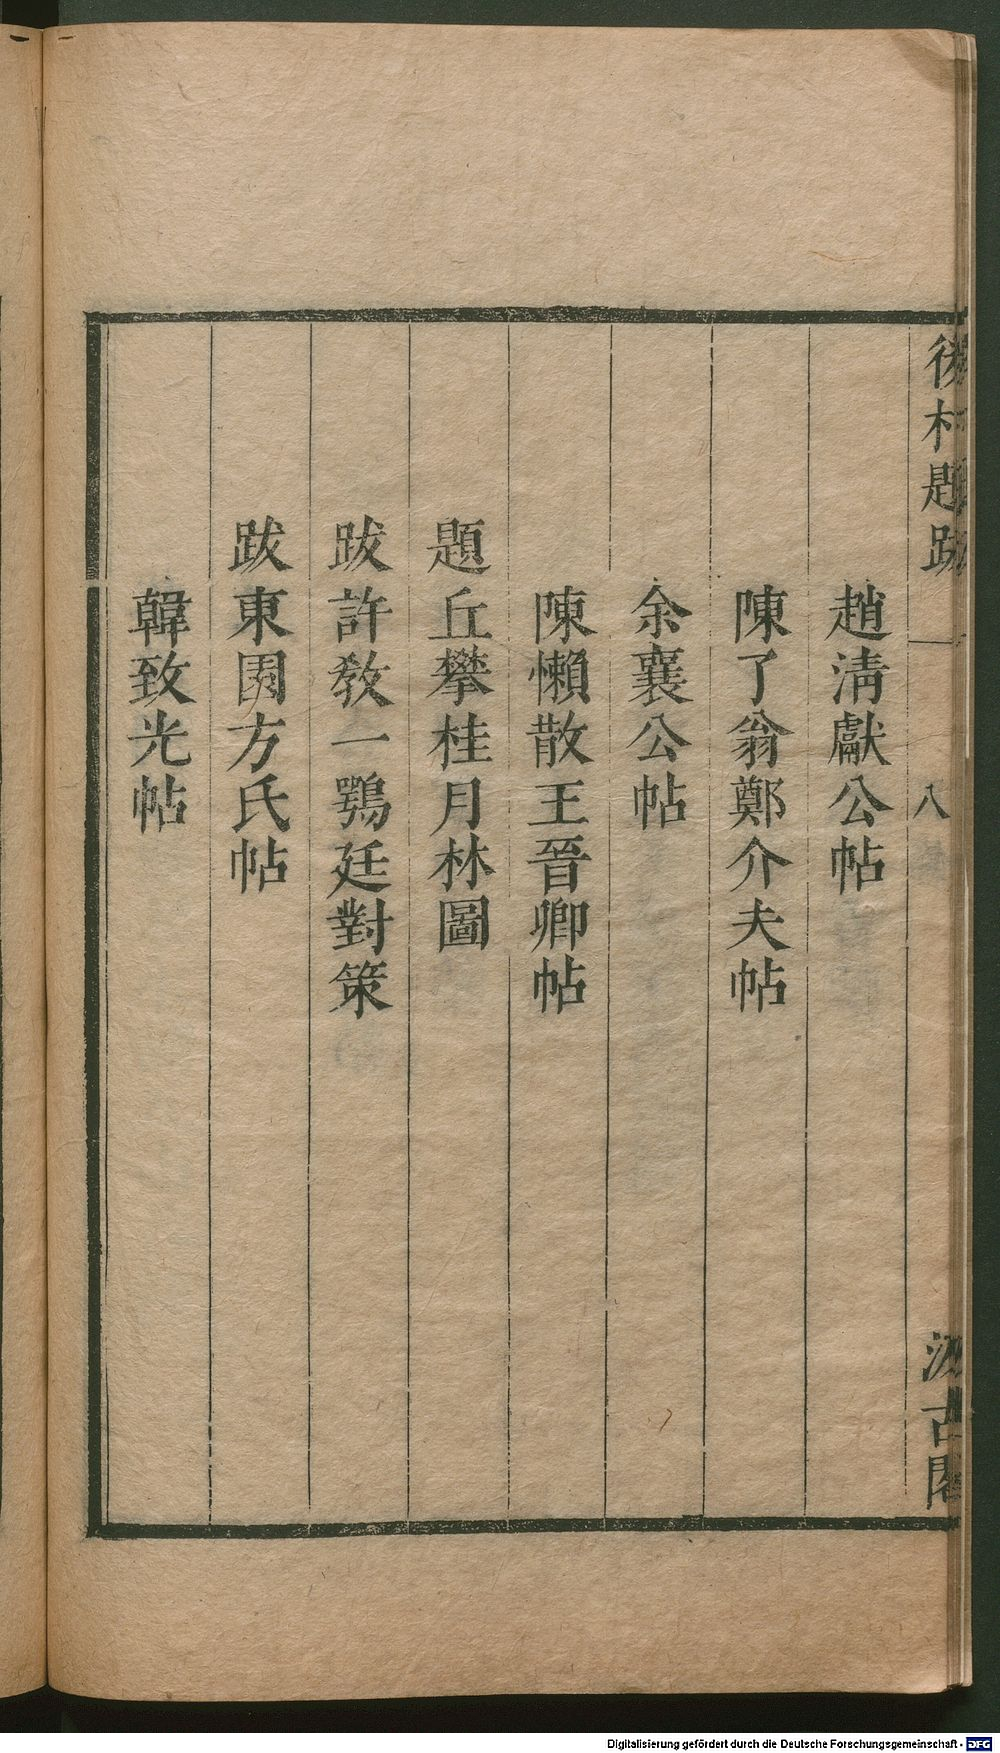 後村題跋
八
汲古閣
趙淸獻公帖
陳了翁鄭介夫帖
余襄公帖
陳懶散王晉卿帖
題丘攀桂月林圖
跋許敎一鶚廷對策
跋東園方氏帖
韓致光帖
Digitalisierung gefördert durch die Deutsche Forschungsgemeinschaft - DFG